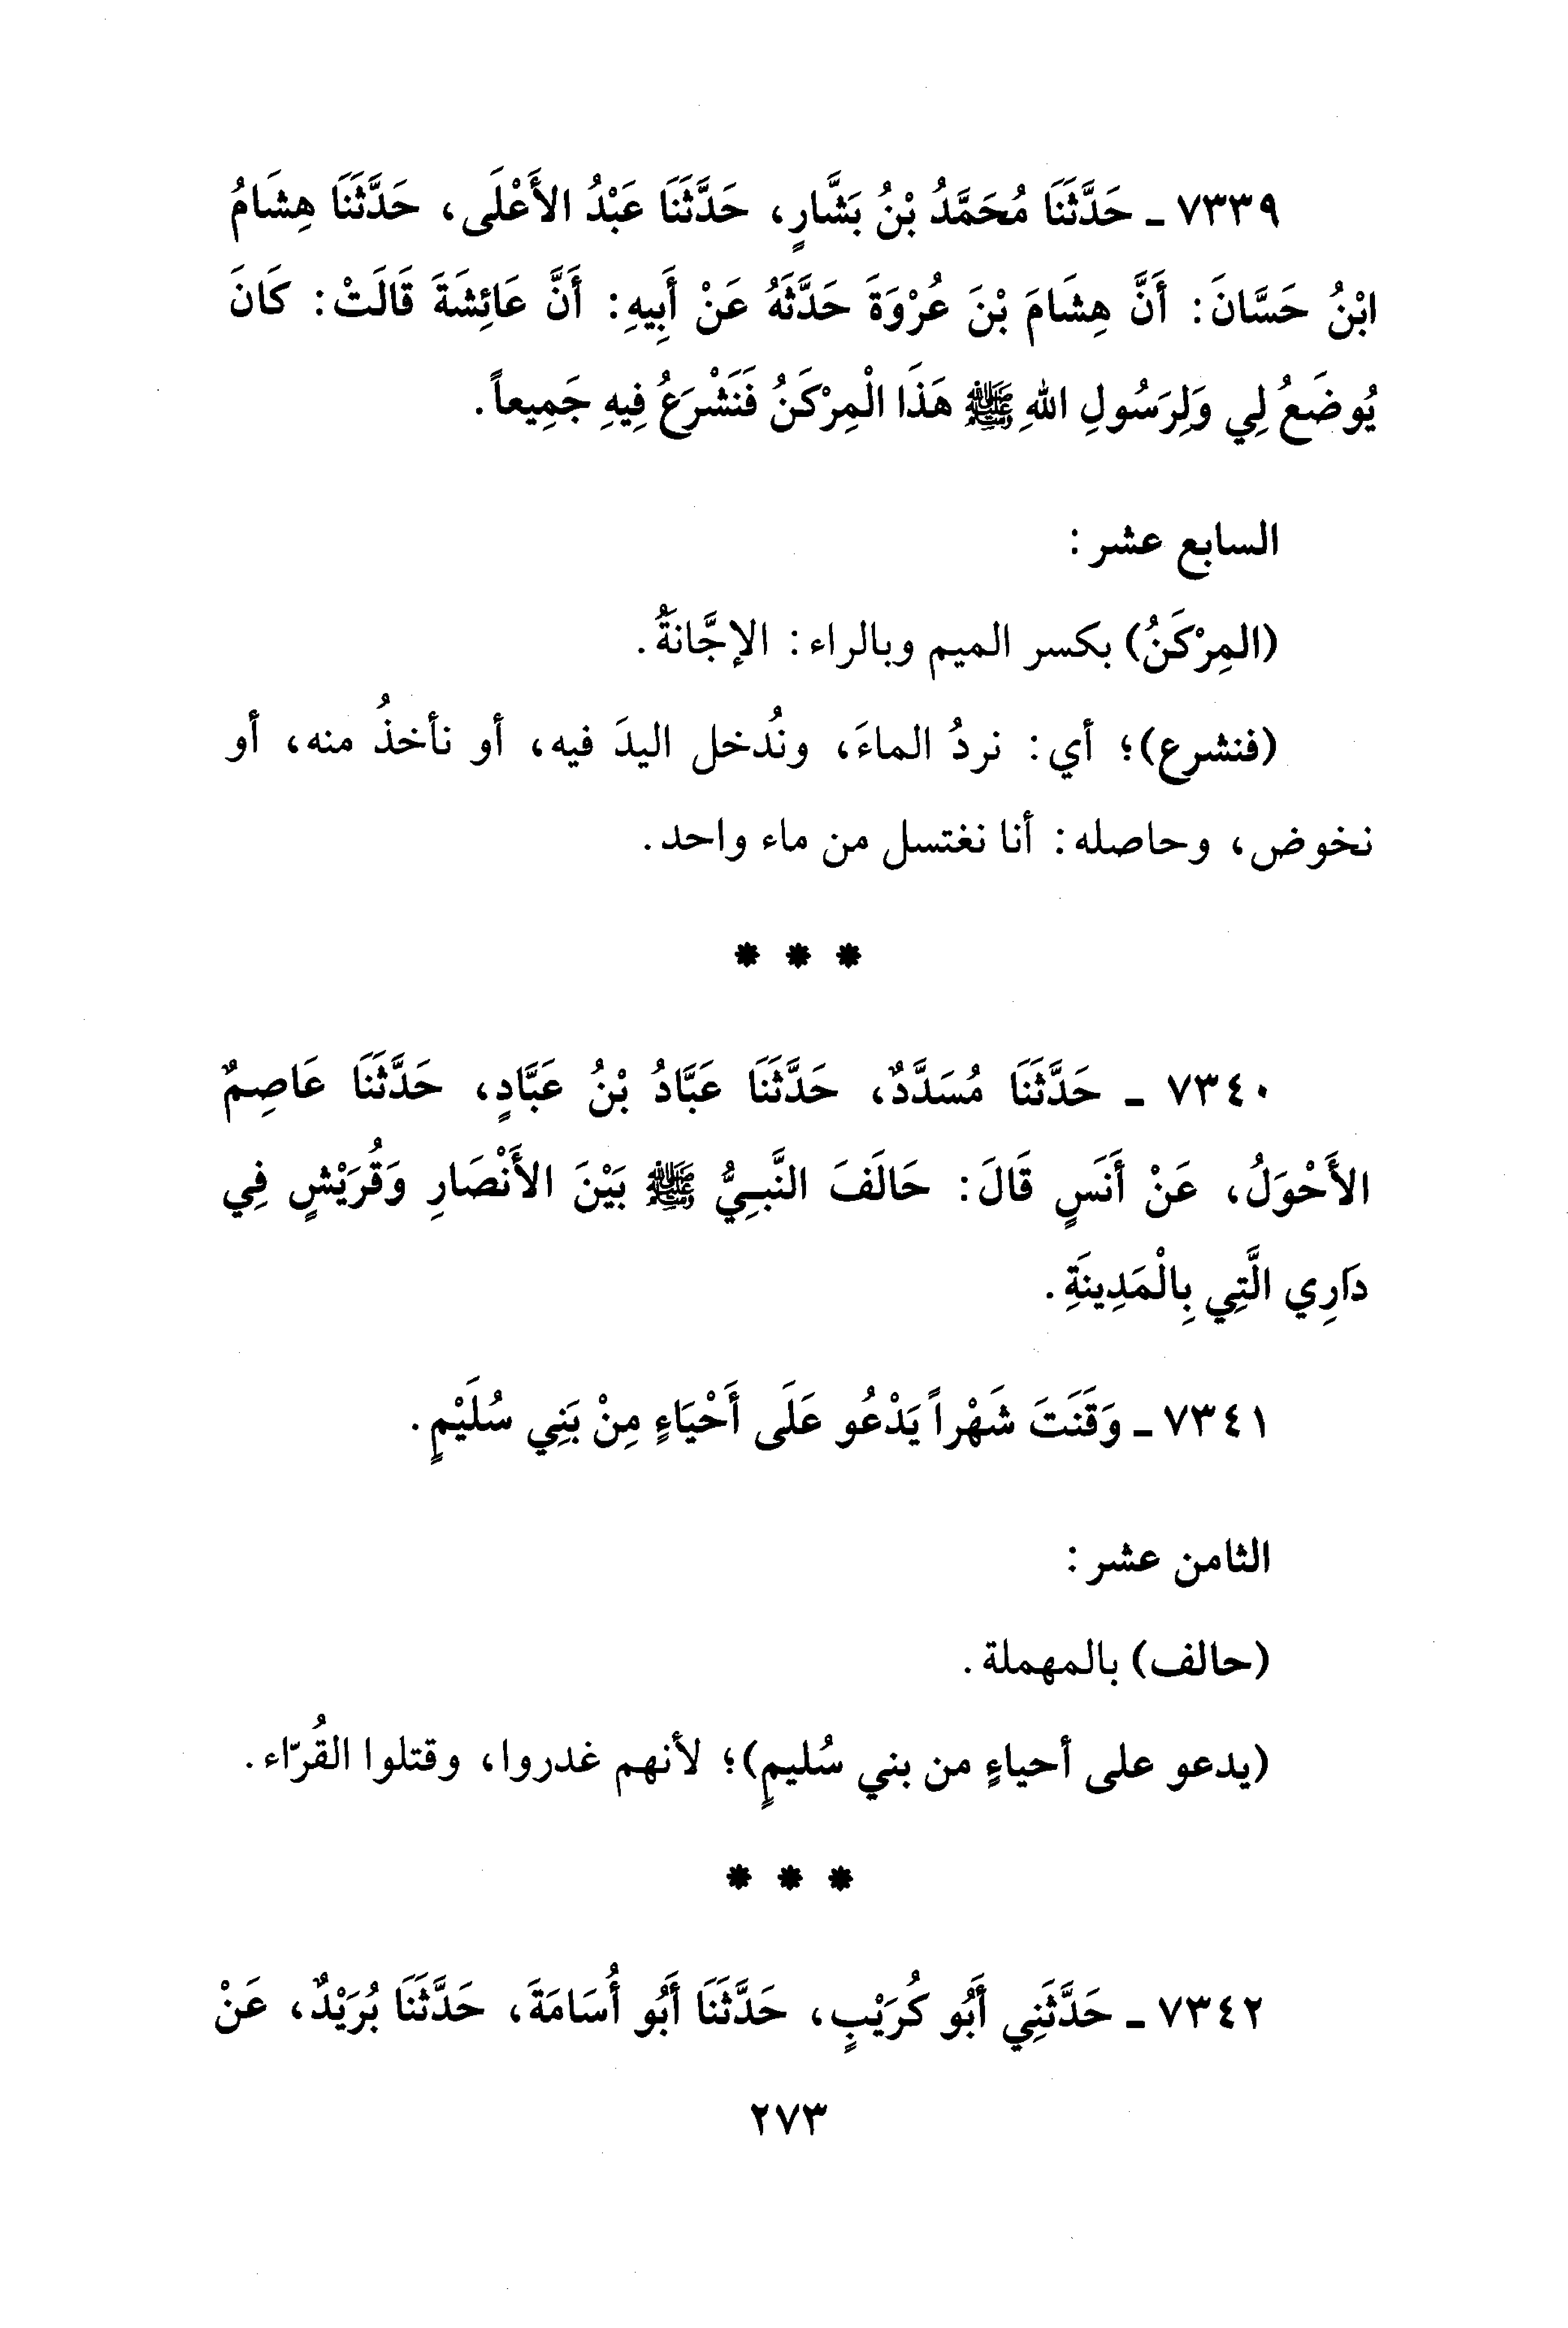 ٧٣٣٩ ـ حَدَّثَنَا مُحَمَّدُ بْنُ بَشَّارٍ، حَدَّثَنَا عَبْدُ الأَعْلَى، حَدَّثَنَا هِشَامُ
ابْنُ حَسَّانَ: أَنَّ هِشَامَ بْنَ عُرْوَةَ حَدَّثَهُ عَنْ أَبِيهِ: أَنَّ عَائِشَةَ قَالَتْ: كَانَ
يُوضَعُ لِي وَلِرَسُولِ اللهِ ﷺ هَذَا الْمِرْكَنُ فَنَشْرَعُ فِيهِ جَمِيعاً.
السابع عشر:
(المِرْكَنُ) بكسر الميم وبالراء: الإجَّانَةُ.
(فنشرع)؛ أي: نردُ الماءَ، ونُدخل اليدَ فيه، أو نأخذُ منه، أو
نخوض، وحاصله: أنا نغتسل من ماء واحد.
* * *
٧٣٤٠ ـ حَدَّثَنَا مُسَدَّدٌ، حَدَّثَنَا عَبَّادُ بْنُ عَبَّادٍ، حَدَّثَنَا عَاصِمٌ
الأَحْوَلُ، عَنْ أَنَسٍ قَالَ: حَالَفَ النَّبِيُّ ﷺ بَيْنَ الأَنْصَارِ وَقُرَيْشٍ فِي
دَارِي الَّتِي بِالْمَدِينَةِ.
٧٣٤١ ـ وَقَنَتَ شَهْراً يَدْعُو عَلَى أَحْيَاءٍ مِنْ بَنِي سُلَيْمٍ.
الثامن عشر:
(حالف) بالمهملة.
(يدعو على أحياءٍ من بني سُليمٍ)؛ لأنهم غدروا، وقتلوا القُرّاء.
* * *
٧٣٤٢ ـ حَدَّثَنِي أَبُو كُرَيْبٍ، حَدَّثَنَا أَبُو أُسَامَةَ، حَدَّثَنَا بُرَيْدٌ، عَنْ
٢٧٣